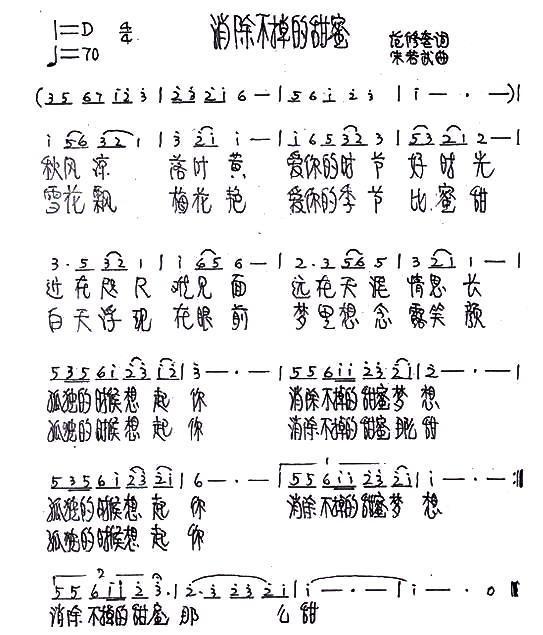 消除不掉的甜蜜
1=D 4/4
范修奎词
♩=70
宋若武曲
(35 67 i2 3 | 23 2i 6 — | 5 6 i 2 3 | i — · — )|
i 56 32 1 | 3 2i i — | i 6 5 32 3 | 53 2i 2 — |
秋风凉 落叶黄 爱你的时节好时光
雪花飘 梅花艳 爱你的季节比蜜甜
3· 5 32 1 | i 65 6 — | 2· 3 56 5 | 3 2i 1 — |
近在咫尺难见面 远在天涯情思长
白天浮现在眼前 梦里想念露笑颜
5 35 6 i 23 i2 | 3 — · — | 5 5 6 ii 23 2i | 2 — · — |
孤独的时候想起你 消除不掉的甜蜜梦想
孤独的时候想起你 消除不掉的甜蜜那么甜
5 35 6 i 23 2i | 6 — · — | 5 5 6 ii 23 2i | i — · — :||
孤独的时候想起你 消除不掉的甜蜜梦想
孤独的时候想起你
5 5 6 ii 2 3· | 2· 3 23 2i | i — · — | i — · 0 ||
消除不掉的甜蜜那么甜